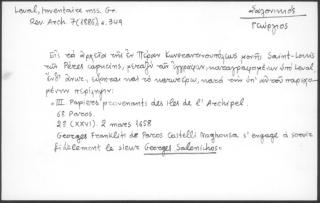 Laval, Inventaire mss. Gr.
Rev. Arch. 7 (1886), σ. 349
Σαλονικιός
Γεώργιος
Εἰς τὰ ἀρχεῖα τῆς ἐν Πέραν Κωνσταντινουπόλεως μονῆς Saint-Louis
τῶν Pères capucins, μεταξὺ τῶν ἐγγράφων, καταγραφομένων ὑπὸ Laval
ἔνθ' ἄνωτ., εὑρίσκεται καὶ τὸ κατωτέρω, κατὰ τὴν ὑπ' αὐτοῦ παρεχο-
μένην περίληψιν:
"III. Papiers provenants des îles de l'Archipel.
6) Paros.
28 (XXVI). 2 mars 1658
Georges Franklits de Paros Castelli Naghousa s'engage à servir
fidèlement le sieur Georges Salonichos".